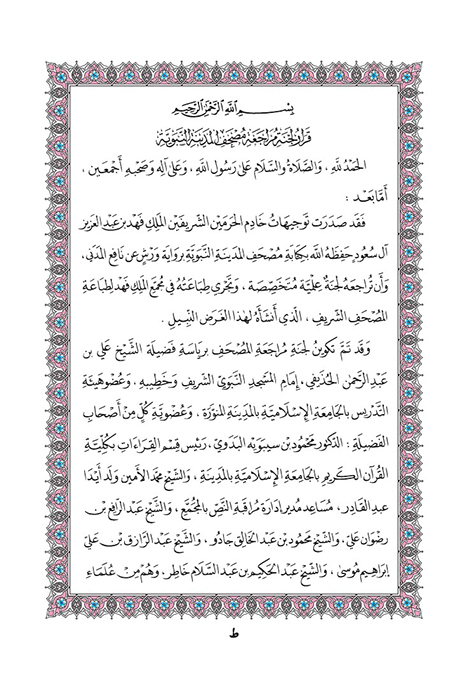 بِسْمِ اللَّهِ الرَّحْمَٰنِ الرَّحِيمِ
قرار لجنة مراجعة مصحف المدينة النبوية
الحَمْدُ للَّهِ ، وَالصَّلَاةُ وَالسَّلَام عَلىٰ رَسُولِ اللَّهِ ، وَعَلىٰ آلِهِ وَصَحْبِهِ أَجْمَعِين ،
أَمَّا بَعْد :
فَقَد صَدَرَت تَوجيهَات خَادِم الحَرَمَيْن الشَّرِيفَيْن المَلِك فَهْد بن عَبد العَزيز
آل سُعُود حَفِظَهُ اللَّه بِكتَابَةِ مُصْحَفِ المَدِينَةِ النَّبَوِيَّةِ بِروَايَة وَرْش عَن نَافِع المَدَنِي ،
وَأَن تُرَاجِعَهُ لَجْنَةٌ عِلْمِيَّة مُتَخَصِّصَة ، وَتَجْرِي طِبَاعَتُهُ فِي مُجَمَّع المَلِك فَهْد لِطِبَاعَةِ
المُصْحَفِ الشَّرِيف ، الَّذِي أَنشَأَهُ لِهذَا الغَرَضِ النَّبِيل .
وَقَد تَمَّ تَكوين لَجنَة مُرَاجَعَة المُصْحَف بِرِيَاسَة فَضِيلَة الشَّيْخ عَلي بن
عَبد الرَّحمٰن الحُذَيفِي، إِمَام المَسْجِد النَّبَوِيّ الشَّرِيف وَخَطِيبِه ، وَعُضْو هَيْئَة
التَّدْرِيس بِالجَامِعَةِ الإِسْلَامِيَّةِ بِالمَدِينَةِ المُنَوَّرَة ، وَعُضْوِيَّة كُلٍّ مِنْ أَصْحَاب
الفَضِيلَة : الدّكتور مَحْمُود بن سِيبَوَيْه البَدَوِي ، رَئِيس قِسْمِ القِرَاءَات بِكُلِّيَّة
القُرآن الكَرِيم بِالجَامِعَةِ الإِسْلَامِيَّةِ بِالمَدِينَة ، وَالشَّيْخ مُحَمَّد الأَمِين وَلَد أَيْدَا
عبد القَادِر ، مُسَاعِد مُدِير إِدَارَة مُرَاقَبَة النَّصّ بِالمُجَمَّع ، وَالشَّيْخ عَبد الرَّافِع بن
رِضْوَان عَلي. وَالشَّيْخ مَحْمُود بن عَبد الخَالِق جَادُو ، وَالشَّيْخ عَبد الرَّازِق بن عَلي
إِبْرَاهِيم مُوسَىٰ ، وَالشَّيْخ عَبد الحَكِيم بن عَبد السَّلَام خَاطِر. وَهُمْ مِن عُلَمَاء
ط